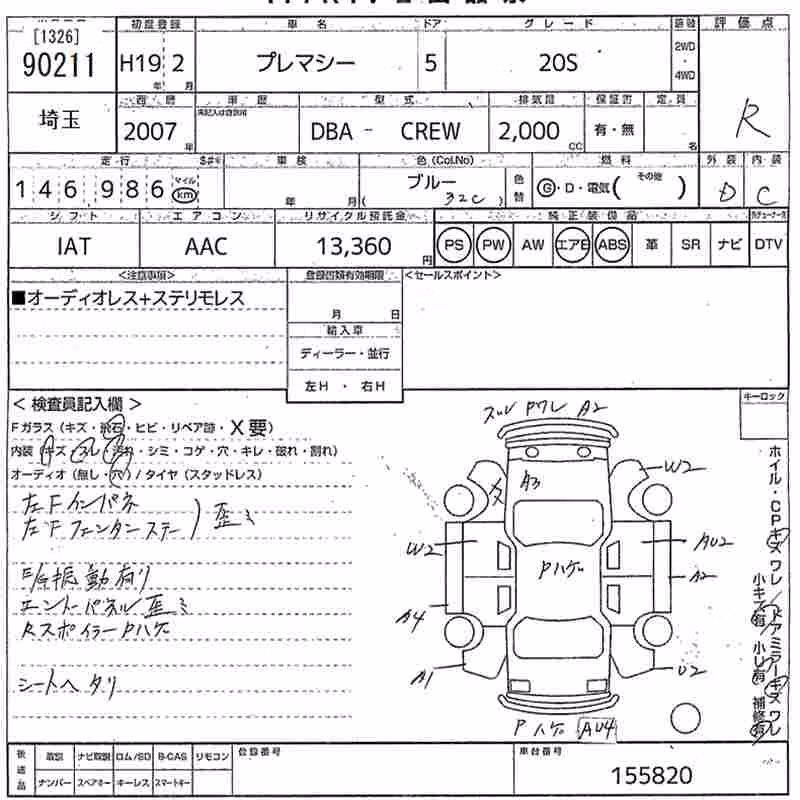 [1326]
90211
初度登録
車名
ドア
グレード
評価点
H19 2
年 月
プレマシー
5
20S
2WD
・
4WD
R
埼玉
西暦
車歴
型式
排気量
保証書
定員
2007 年
未記入は自家用
DBA - CREW
2,000 CC
有・無
名
走行
車検
色(Col.No)
燃料
外装
内装
146,986
マイル
km
年 月
ブルー
( 32C )
色替
G・D・電気( その他 )
D
C
シフト
エアコン
リサイクル預託金
純正装備品
IAT
AAC
13,360 円
PS PW AW エアB ABS 革 SR ナビ DTV
<注意事項>
登録書類有効期限
<セールスポイント>
■オーディオレス+ステリモレス
月 日
輸入車
ディーラー・並行
左H ・ 右H
キーロック
< 検査員記入欄 >
Fガラス (キズ・飛石・ヒビ・リペア跡・X要)
内装 (キズ・スレ・汚れ・シミ・コゲ・穴・キレ・破れ・割れ)
オーディオ (無し・穴) / タイヤ (スタッドレス)
左Fインパネ
左Fフェンダンステー
歪ミ
E/G振動有り
エンドーパネル歪ミ
RスポイラーPハゲ
シートヘタリ
スレ Pワレ A2
A3
W2
W2
AU2
Pハゲ
A2
A4
A1
U2
Pハゲ AU4
ホイル・CPキズ ワレ / ドアミラーキズ ワレ
小キズ有 小U有 補修有
後送品
取説
ナビ取説
ロム/SD
B-CAS
リモコン
ナンバー
スペアキー
キーレス
スマートキー
登録番号
車台番号
155820